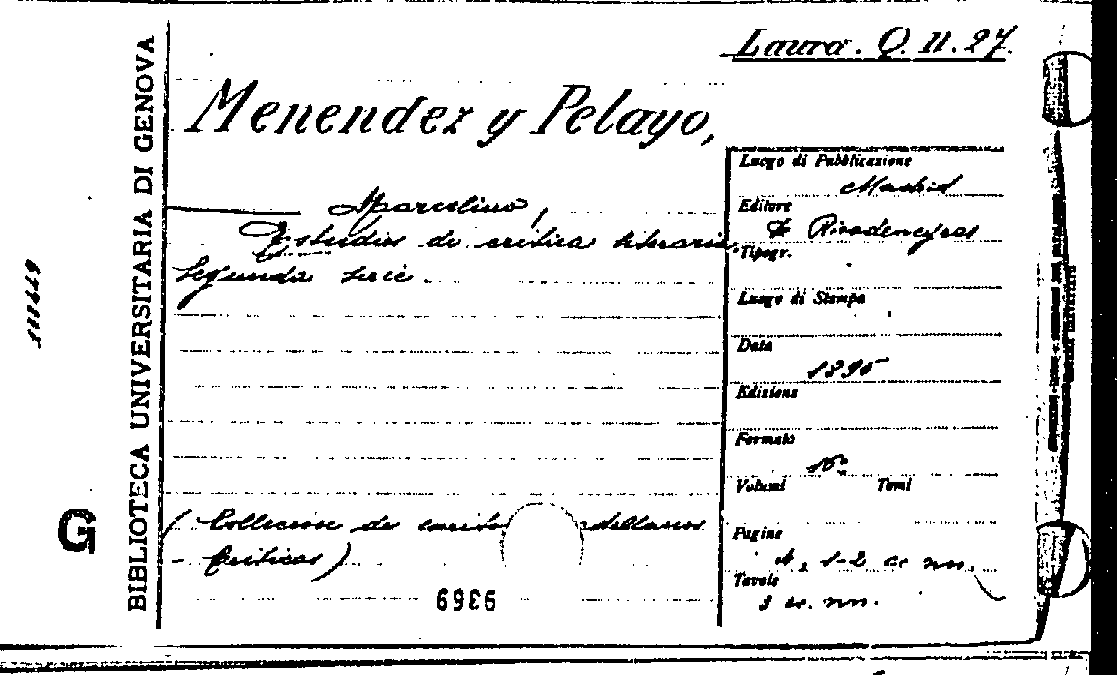 Laura. Q. II. 27.
Menendez y Pelayo,
Marcelino,
Estudios de critica literaria.
Segunda serie.
(Colleccion de escrito dellanos
- Criticos)
9369
BIBLIOTECA UNIVERSITARIA DI GENOVA
G
Luogo di Pubblicazione
Madrid
Editore
Rivadeneyra
Tipogr.
Luogo di Stampa
Data
1895
Edizione
Formato
16°
Volumi Tomi
Pagine
1-2 cc nn.
Tavole
3 cc. nn.